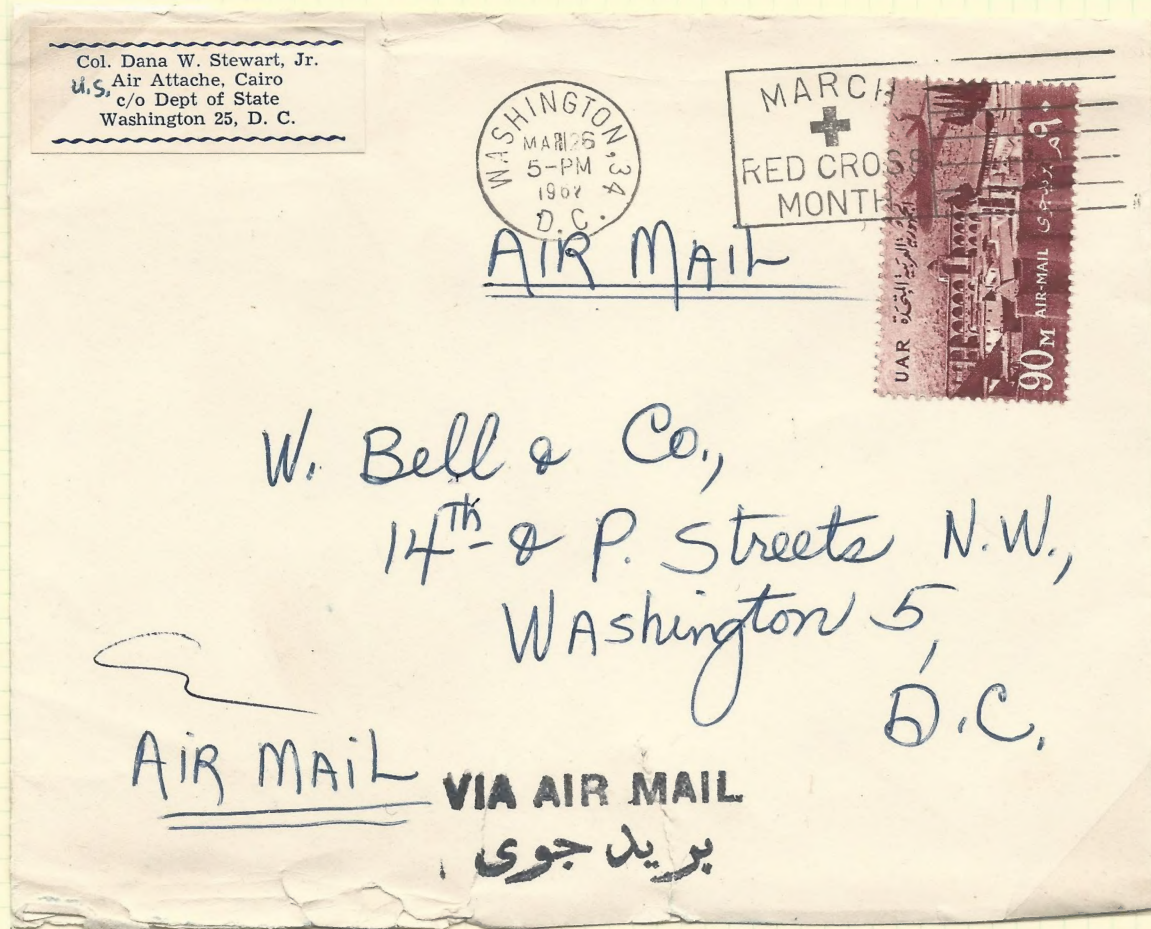 Col. Dana W. Stewart, Jr.
U.S. Air Attache, Cairo
c/o Dept of State
Washington 25, D. C.
WASHINGTON, 34
MAR 26
5-PM
1962
D. C.
MARCH
RED CROSS
MONTH
UAR الجمهورية العربية المتحدة
90 M AIR-MAIL بريد جوى ٩٠ م
AIR MAIL
W. Bell & Co.,
14th & P. Streets N.W.,
Washington 5,
D.C.
AIR MAIL
VIA AIR MAIL
بريد جوى